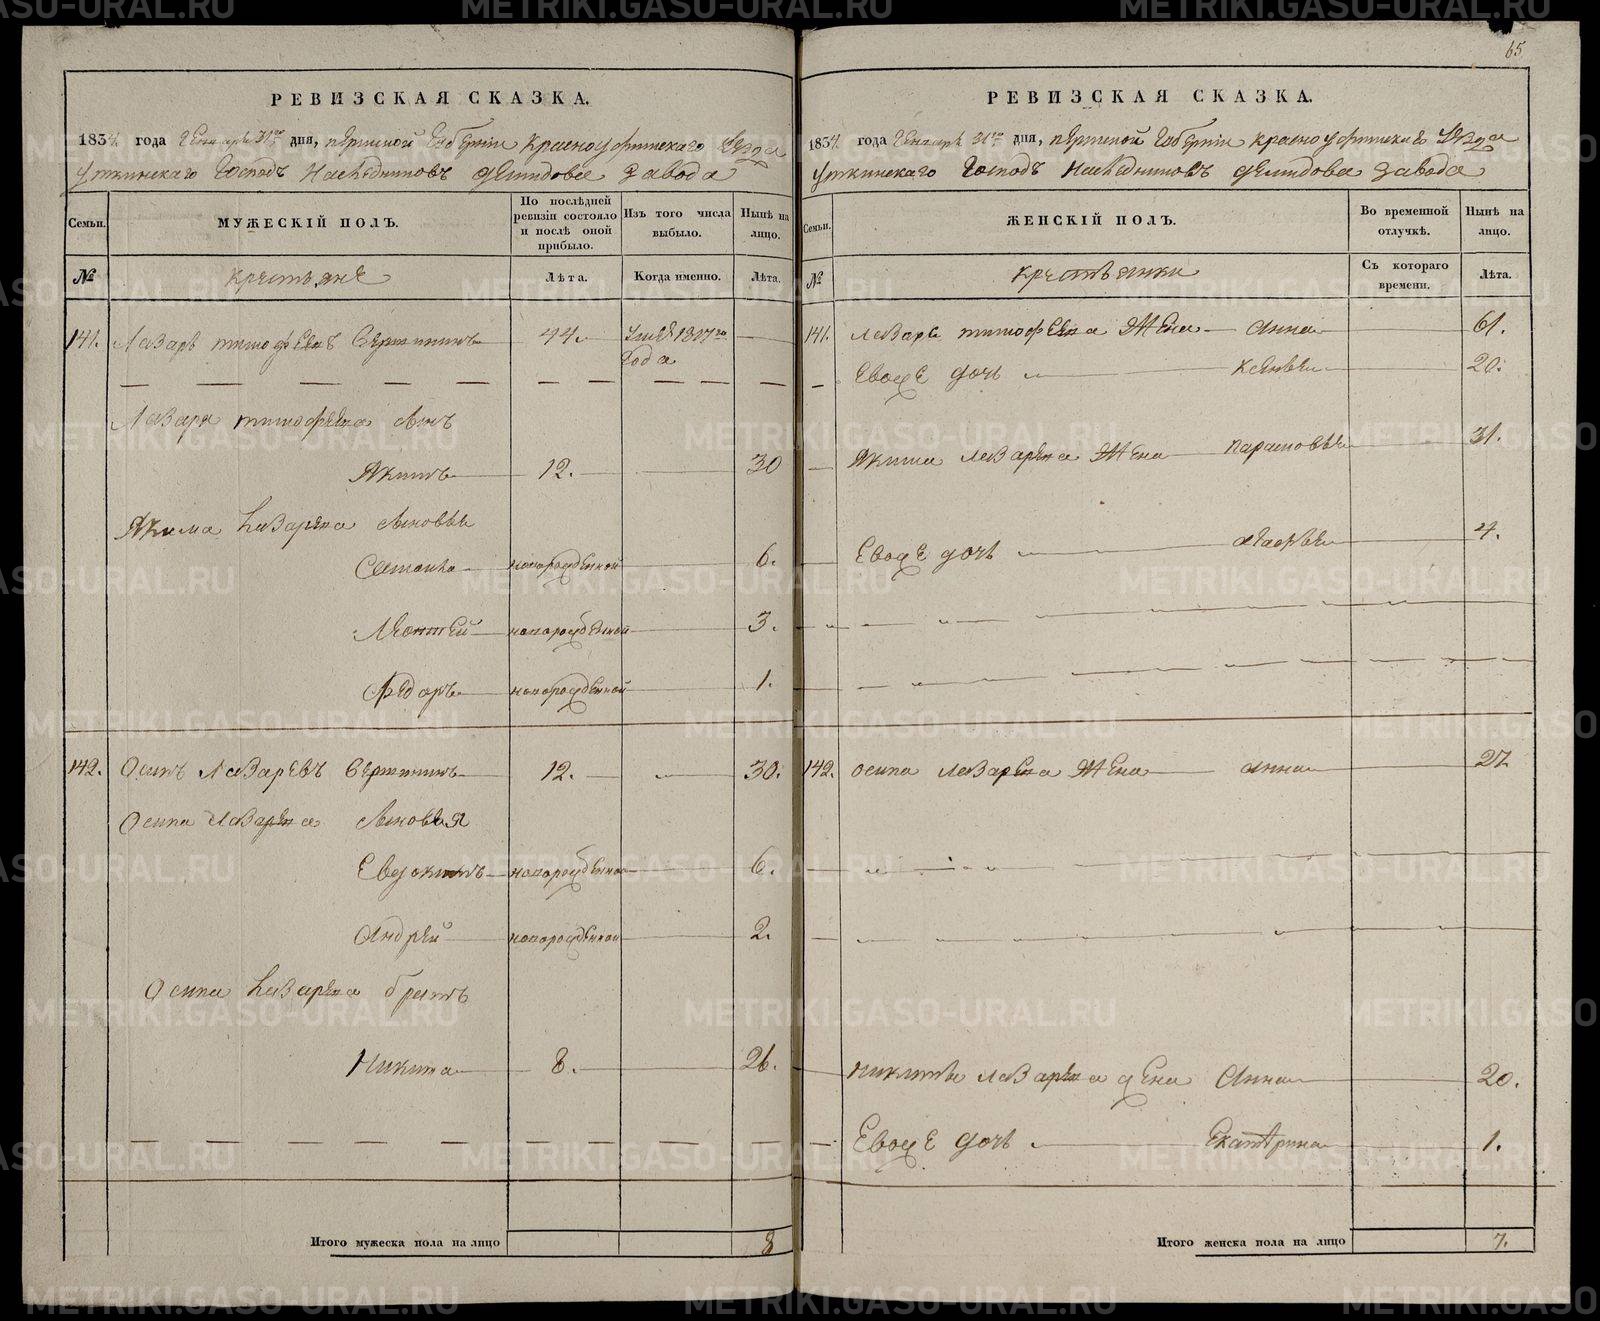 65
РЕВИЗСКАЯ СКАЗКА.
1834 года Генваря 31го дня, пермской Губернии Красноуфимского Уезда
Уткинскаго Господъ Наследниковъ Демидовы Завода
Семьи.
МУЖЕСКІЙ ПОЛЪ.
По послѣдней ревизіи состояло и послѣ оной прибыло.
Изъ того числа выбыло.
Нынѣ на лицо.
№
крестьяне
Лѣта.
Когда именно.
Лѣта.
141. Лазарь тимофеевъ 44. 1817го
года
Лазаря тимофеева сынъ
Якимъ 12. 30
Якима Лазарева сыновья
новорожденной 6.
Леонтей новорожденной 3.
Федоръ новорожденной 1.
142. Осипъ Лазаревъ 12. 30.
Осипа Лазарева сыновья
Евдокимъ новорожденной 6.
Андрей новорожденной 2.
Осипа Лазарева братъ
Никита 8. 26.
Итого мужеска пола на лицо 8
РЕВИЗСКАЯ СКАЗКА.
1834 года Генваря 31го дня, пермской Губернии красноуфимскаго Уезда
Уткинскаго Господъ Наследниковъ демидовы Завода
Семьи.
ЖЕНСКІЙ ПОЛЪ.
Во временной отлучкѣ.
Нынѣ на лицо.
№
крестьянки
Съ котораго времени.
Лѣта.
141. Лазаря тимофеева Жена Анна 61.
Евоже дочь 20.
Якима Лазарева Жена парасковья 31.
Евоже дочь 4.
142. осипа Лазарева Жена Анна 27
никиты Лазарева жена Анна 20.
Евоже дочь Екатерина 1.
Итого женска пола на лицо 7.
METRIKI.GASO-URAL.RU